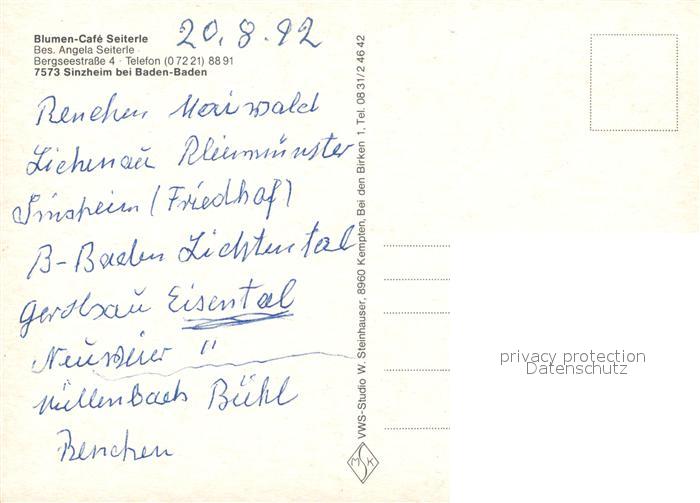 Blumen-Café Seiterle
Bes. Angela Seiterle
Bergseestraße 4 · Telefon (0 72 21) 88 91
7573 Sinzheim bei Baden-Baden
20.8.92
Renchen Maiwald
Lichenau Rheinmünster
Sinsheim (Friedhof)
B-Baden Lichtental
Gerolsau Eisental
Neuweier "
Müllenbach Bühl
Renchen
VWS-Studio W. Steinhauser, 8960 Kempten, Bei den Birken 1, Tel. 08 31/2 46 42
MSK
privacy protection
Datenschutz